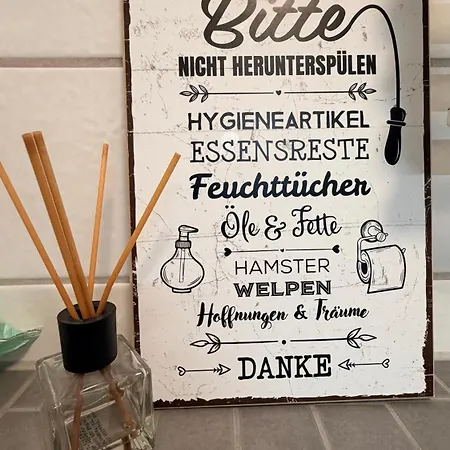 Bitte
NICHT HERUNTERSPÜLEN
HYGIENEARTIKEL
ESSENSRESTE
Feuchttücher
Öle & Fette
HAMSTER
WELPEN
Hoffnungen & Träume
DANKE